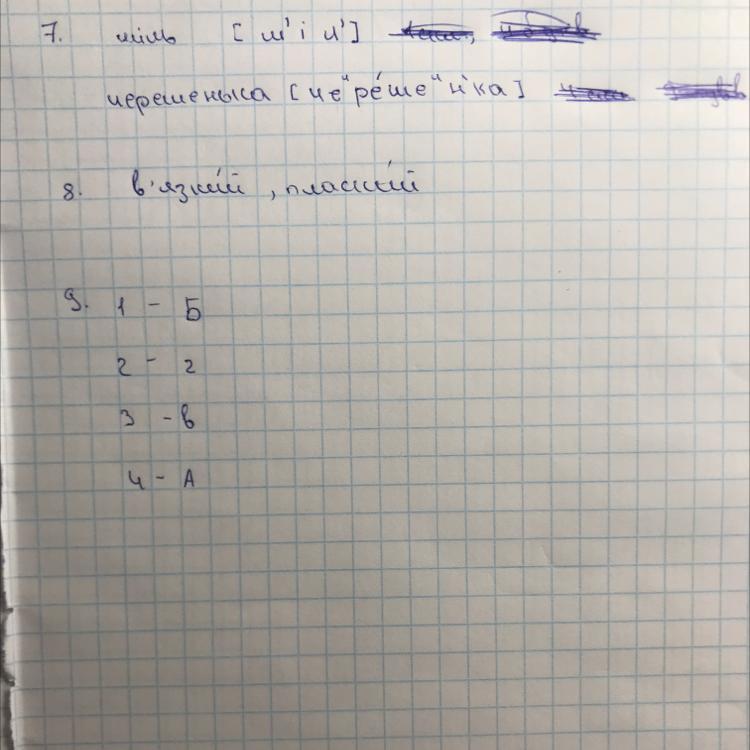 7. міль [м' і л']
черешенька [чеᴻре́шеᴻн'ка]
8. в'язки́й, пласки́й
9. 1 - Б
2 - г
3 - в
4 - А